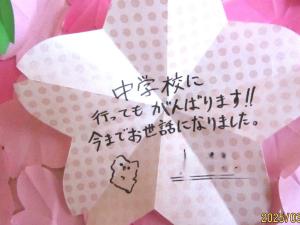 中学校に
行っても がんばります!!
今までお世話になりました。